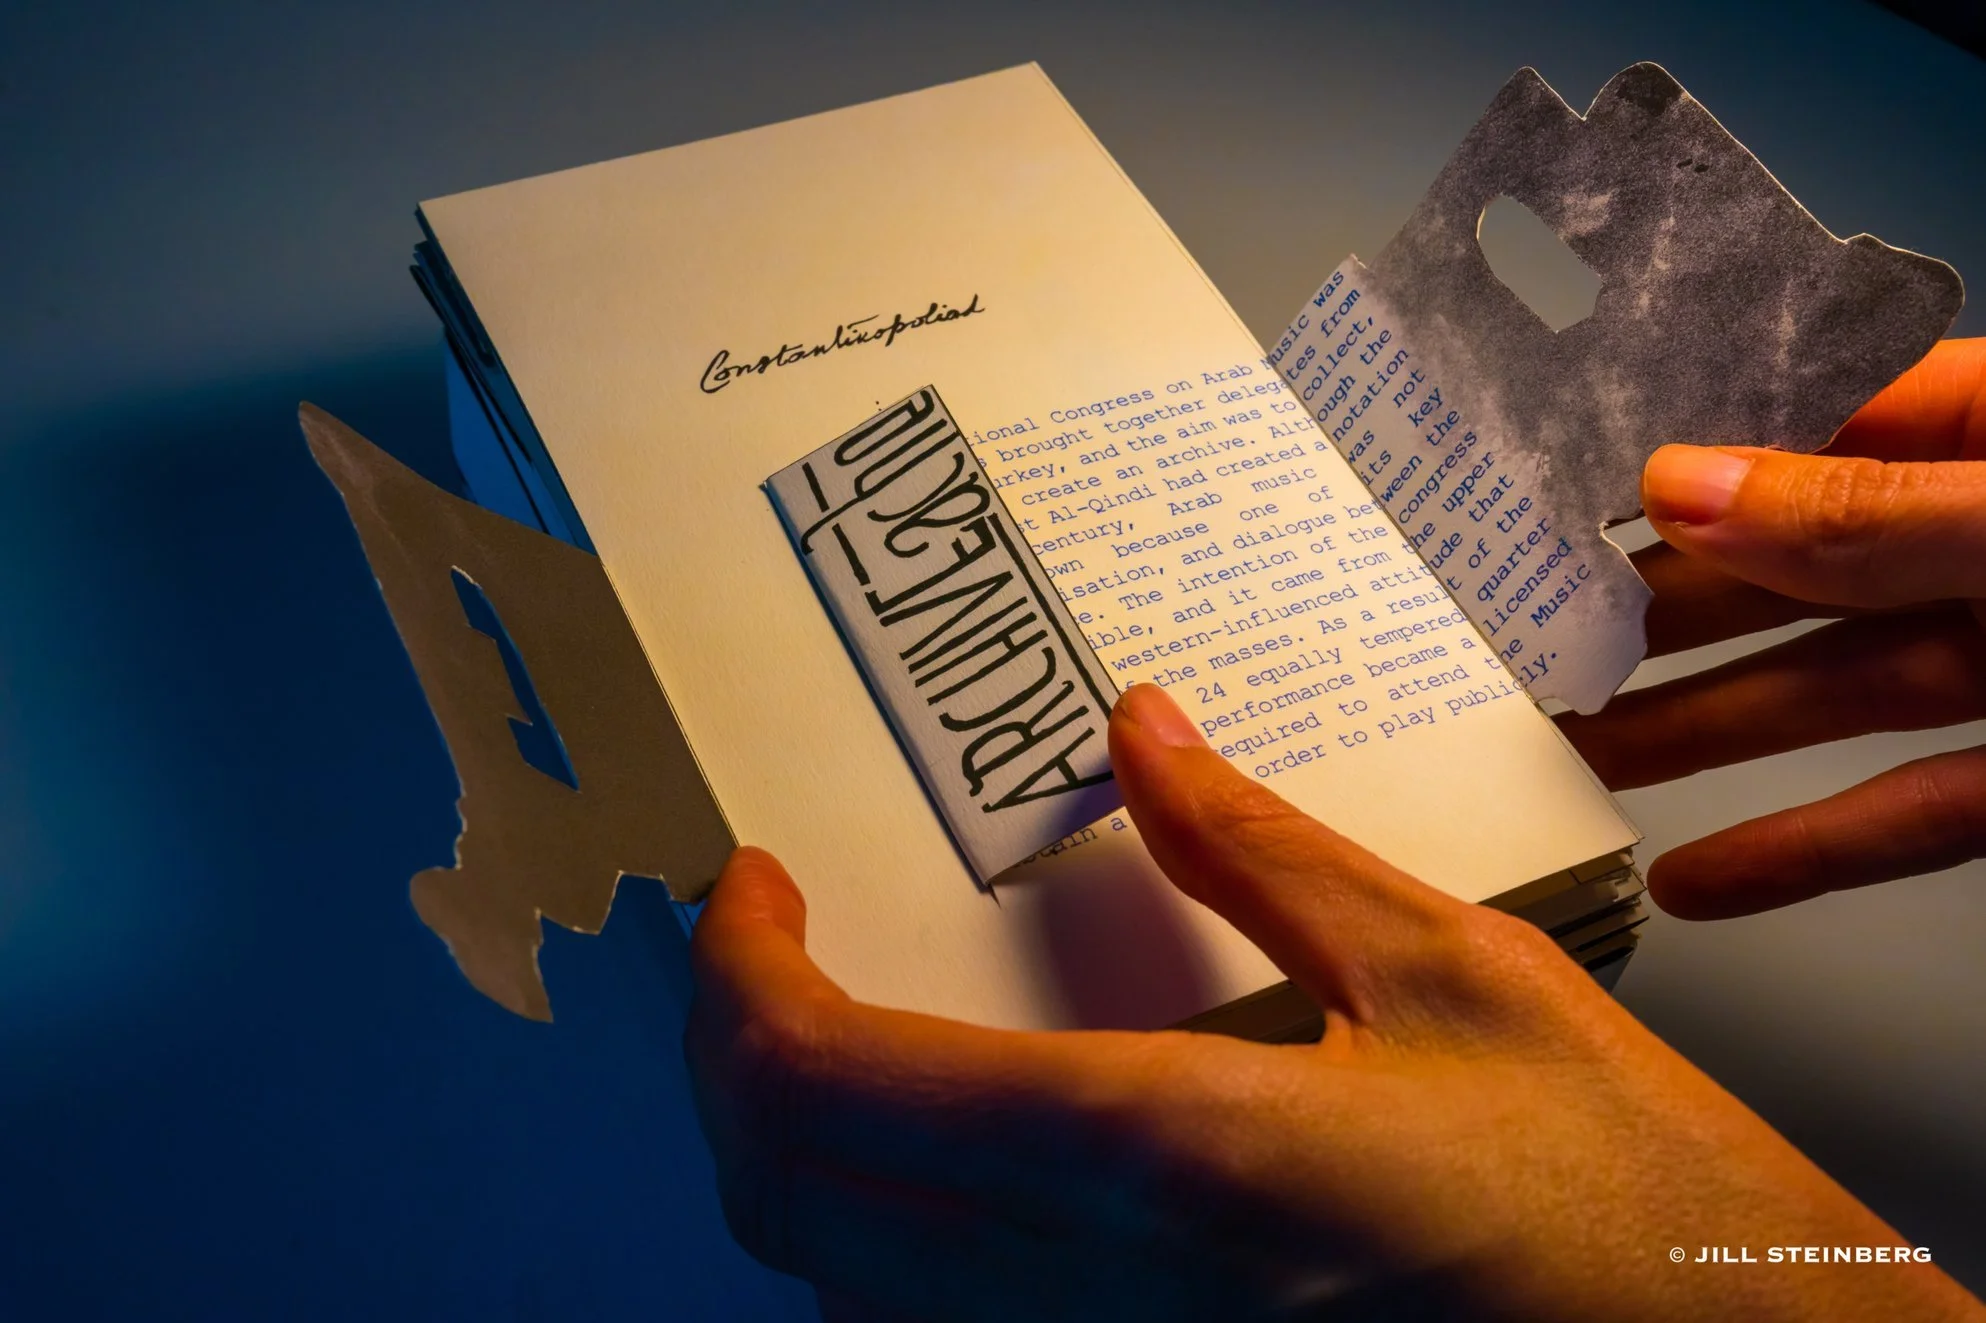 Constantinopoliad
tional Congress on Arab Music was
s brought together delegates from
urkey, and the aim was to collect,
create an archive. Although the
st Al-Qindi had created a notation
century, Arab music was not
own because one of its key
isation, and dialogue between the
e. The intention of the congress
ible, and it came from the upper
western-influenced attitude that
f the masses. As a result of the
24 equally tempered quarter
performance became a licensed
equired to attend the Music
order to play publicly.
tain a
ARCHIVE
© JILL STEINBERG